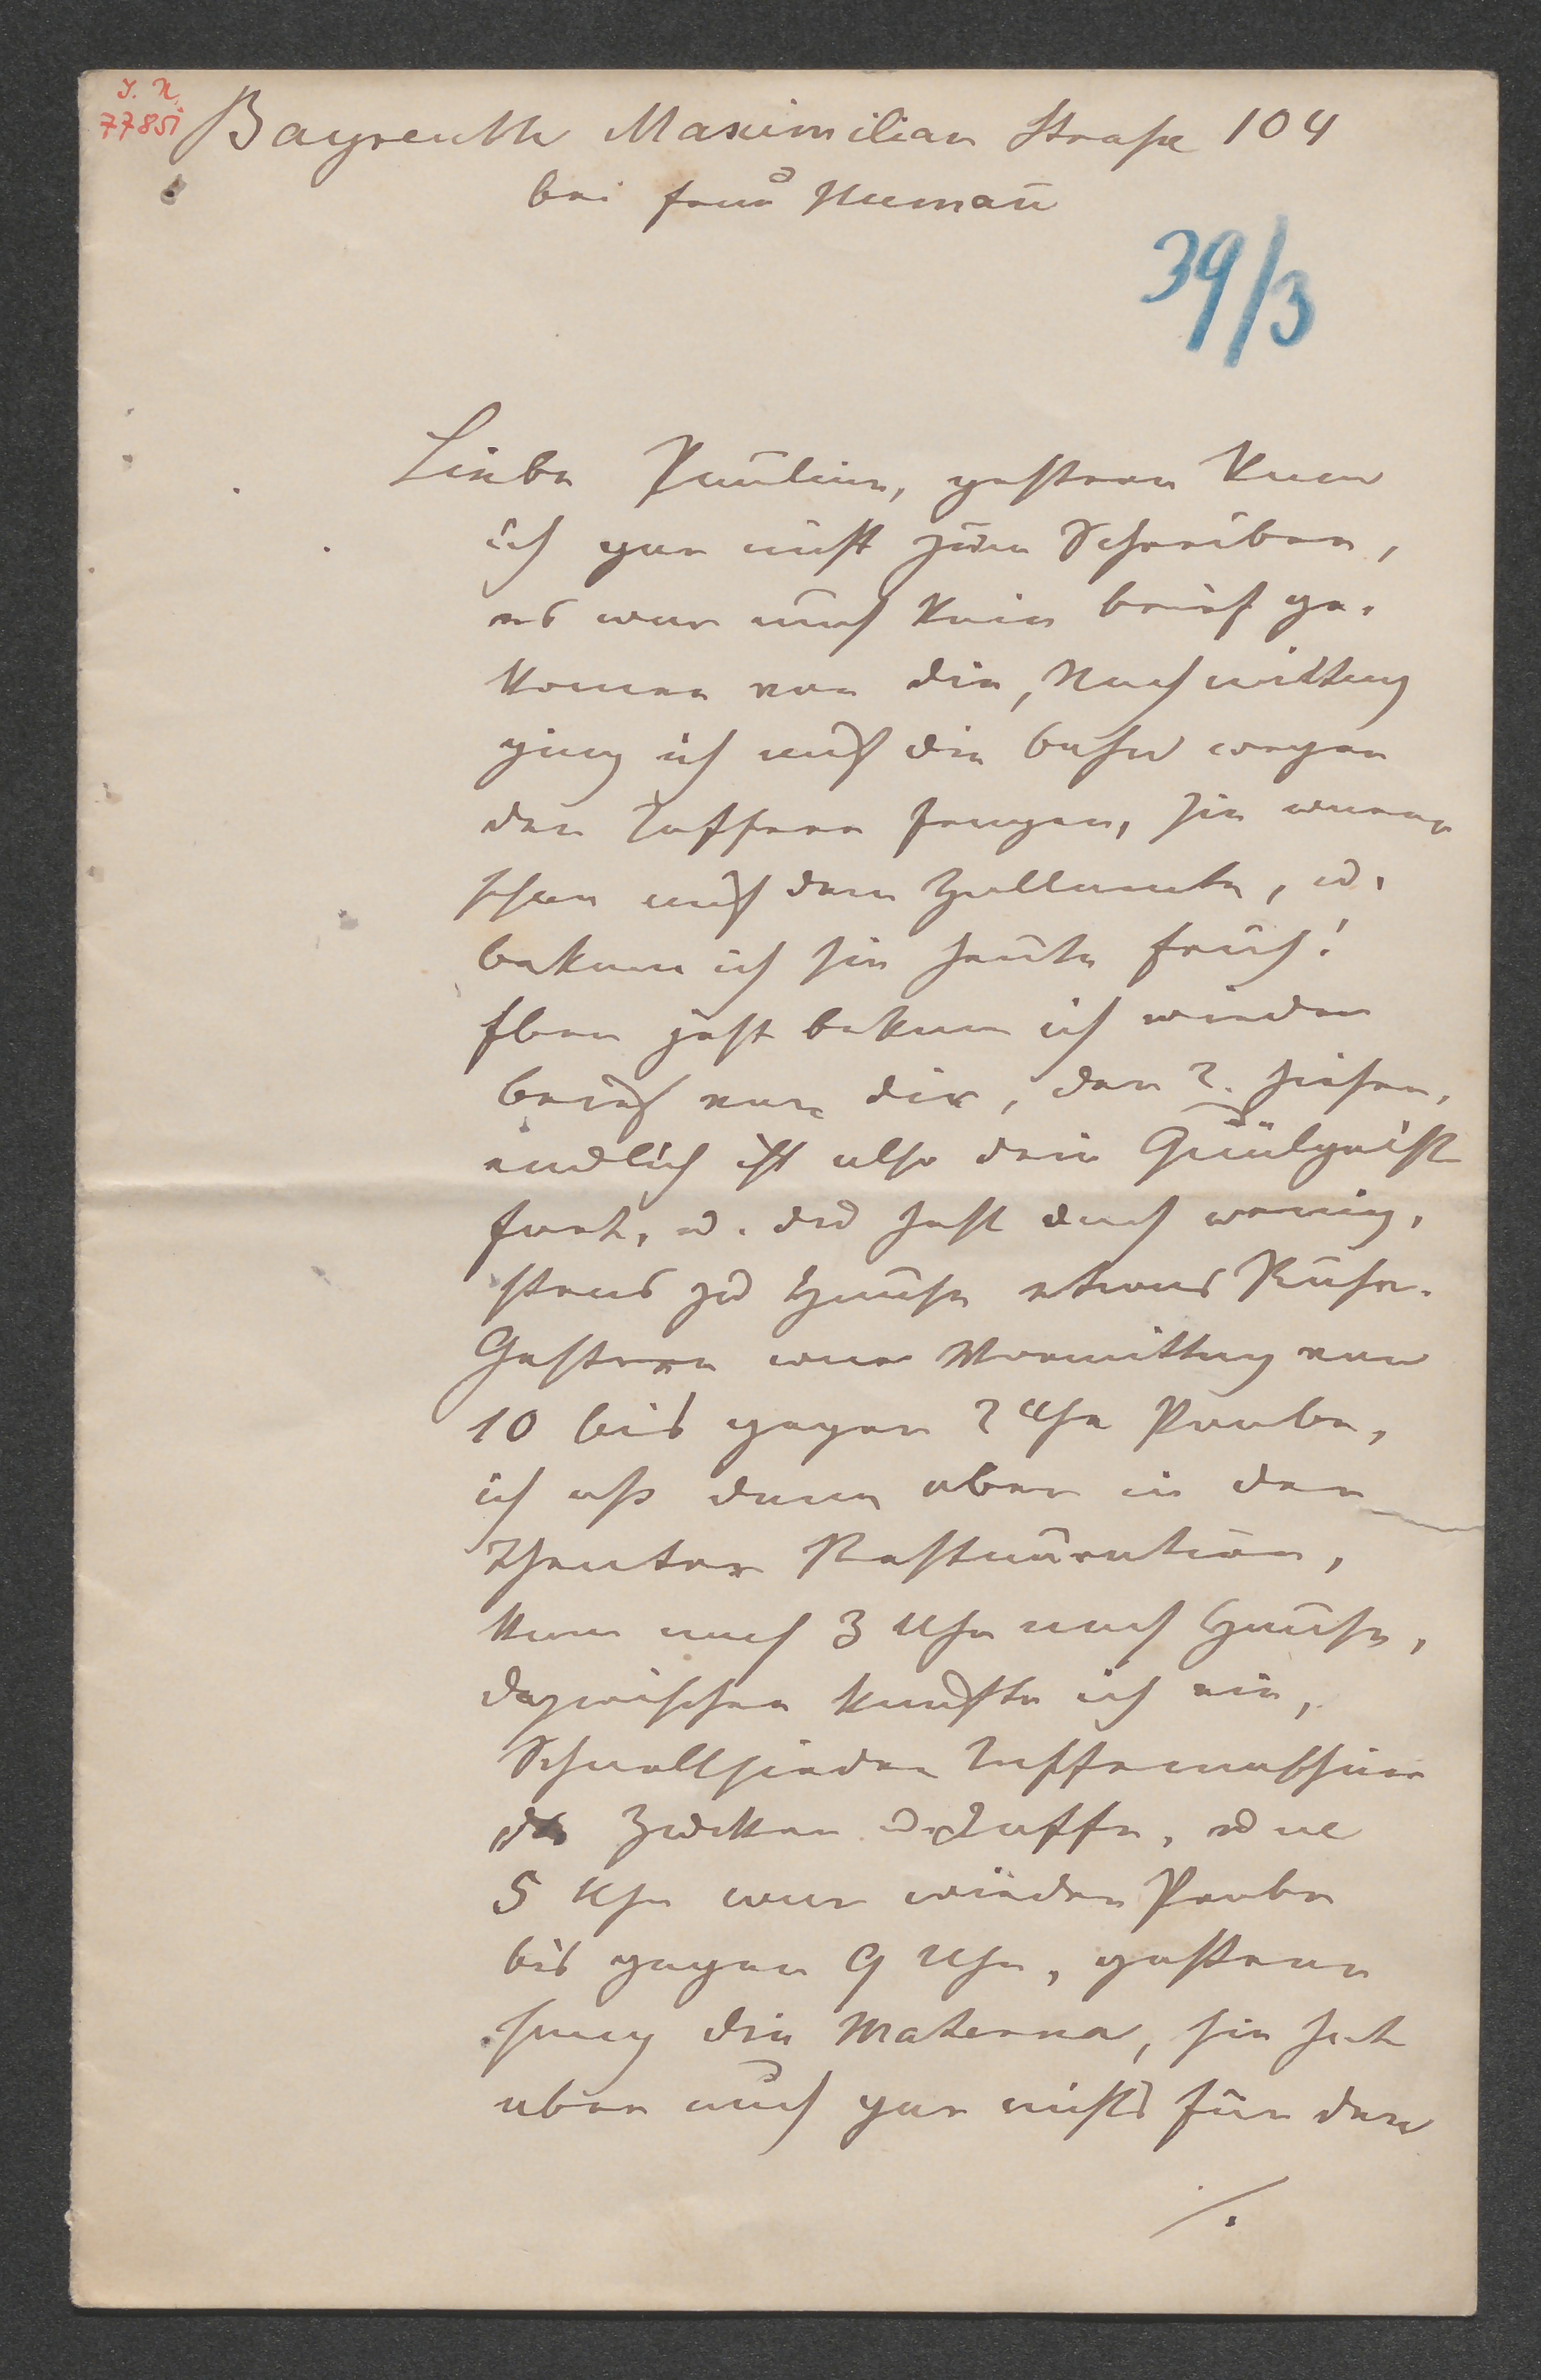 J. N.
77851
Bayreuth Maximilian Straße 104
bei Frau Numañ
39/3
Liebe Pauline, gestern kam
ich gar nicht zum Schreiben,
es war auch kein brief ge-
komen von dir, Nachmittag
ging ich auf die bahn wegen
den Koffern fragen, sie waren
schon auf dem Zollamte, u.
bekam ich sie heute früh!
Eben jetzt bekam ich wieder
brief von dir, den 2. hieher,
endlich ist also dein Quälgeist
fort, u. du hast doch wenig-
stens zu Hause etwas Ruhe.
Gestern war Vormittag von
10 bis gegen 2 Uhr Probe,
ich aß dann oben in der
Theater Restauration,
kam nach 3 Uhr nach Hause,
dazwischen kaufte ich ein,
Schnellsieder Kaffemaschine
Zucker u. Kaffe, u um
5 Uhr war wieder Probe
bis gegen 9 Uhr, gestern
sang die Materna, sie hat
aber auch gar nichts für den
/.